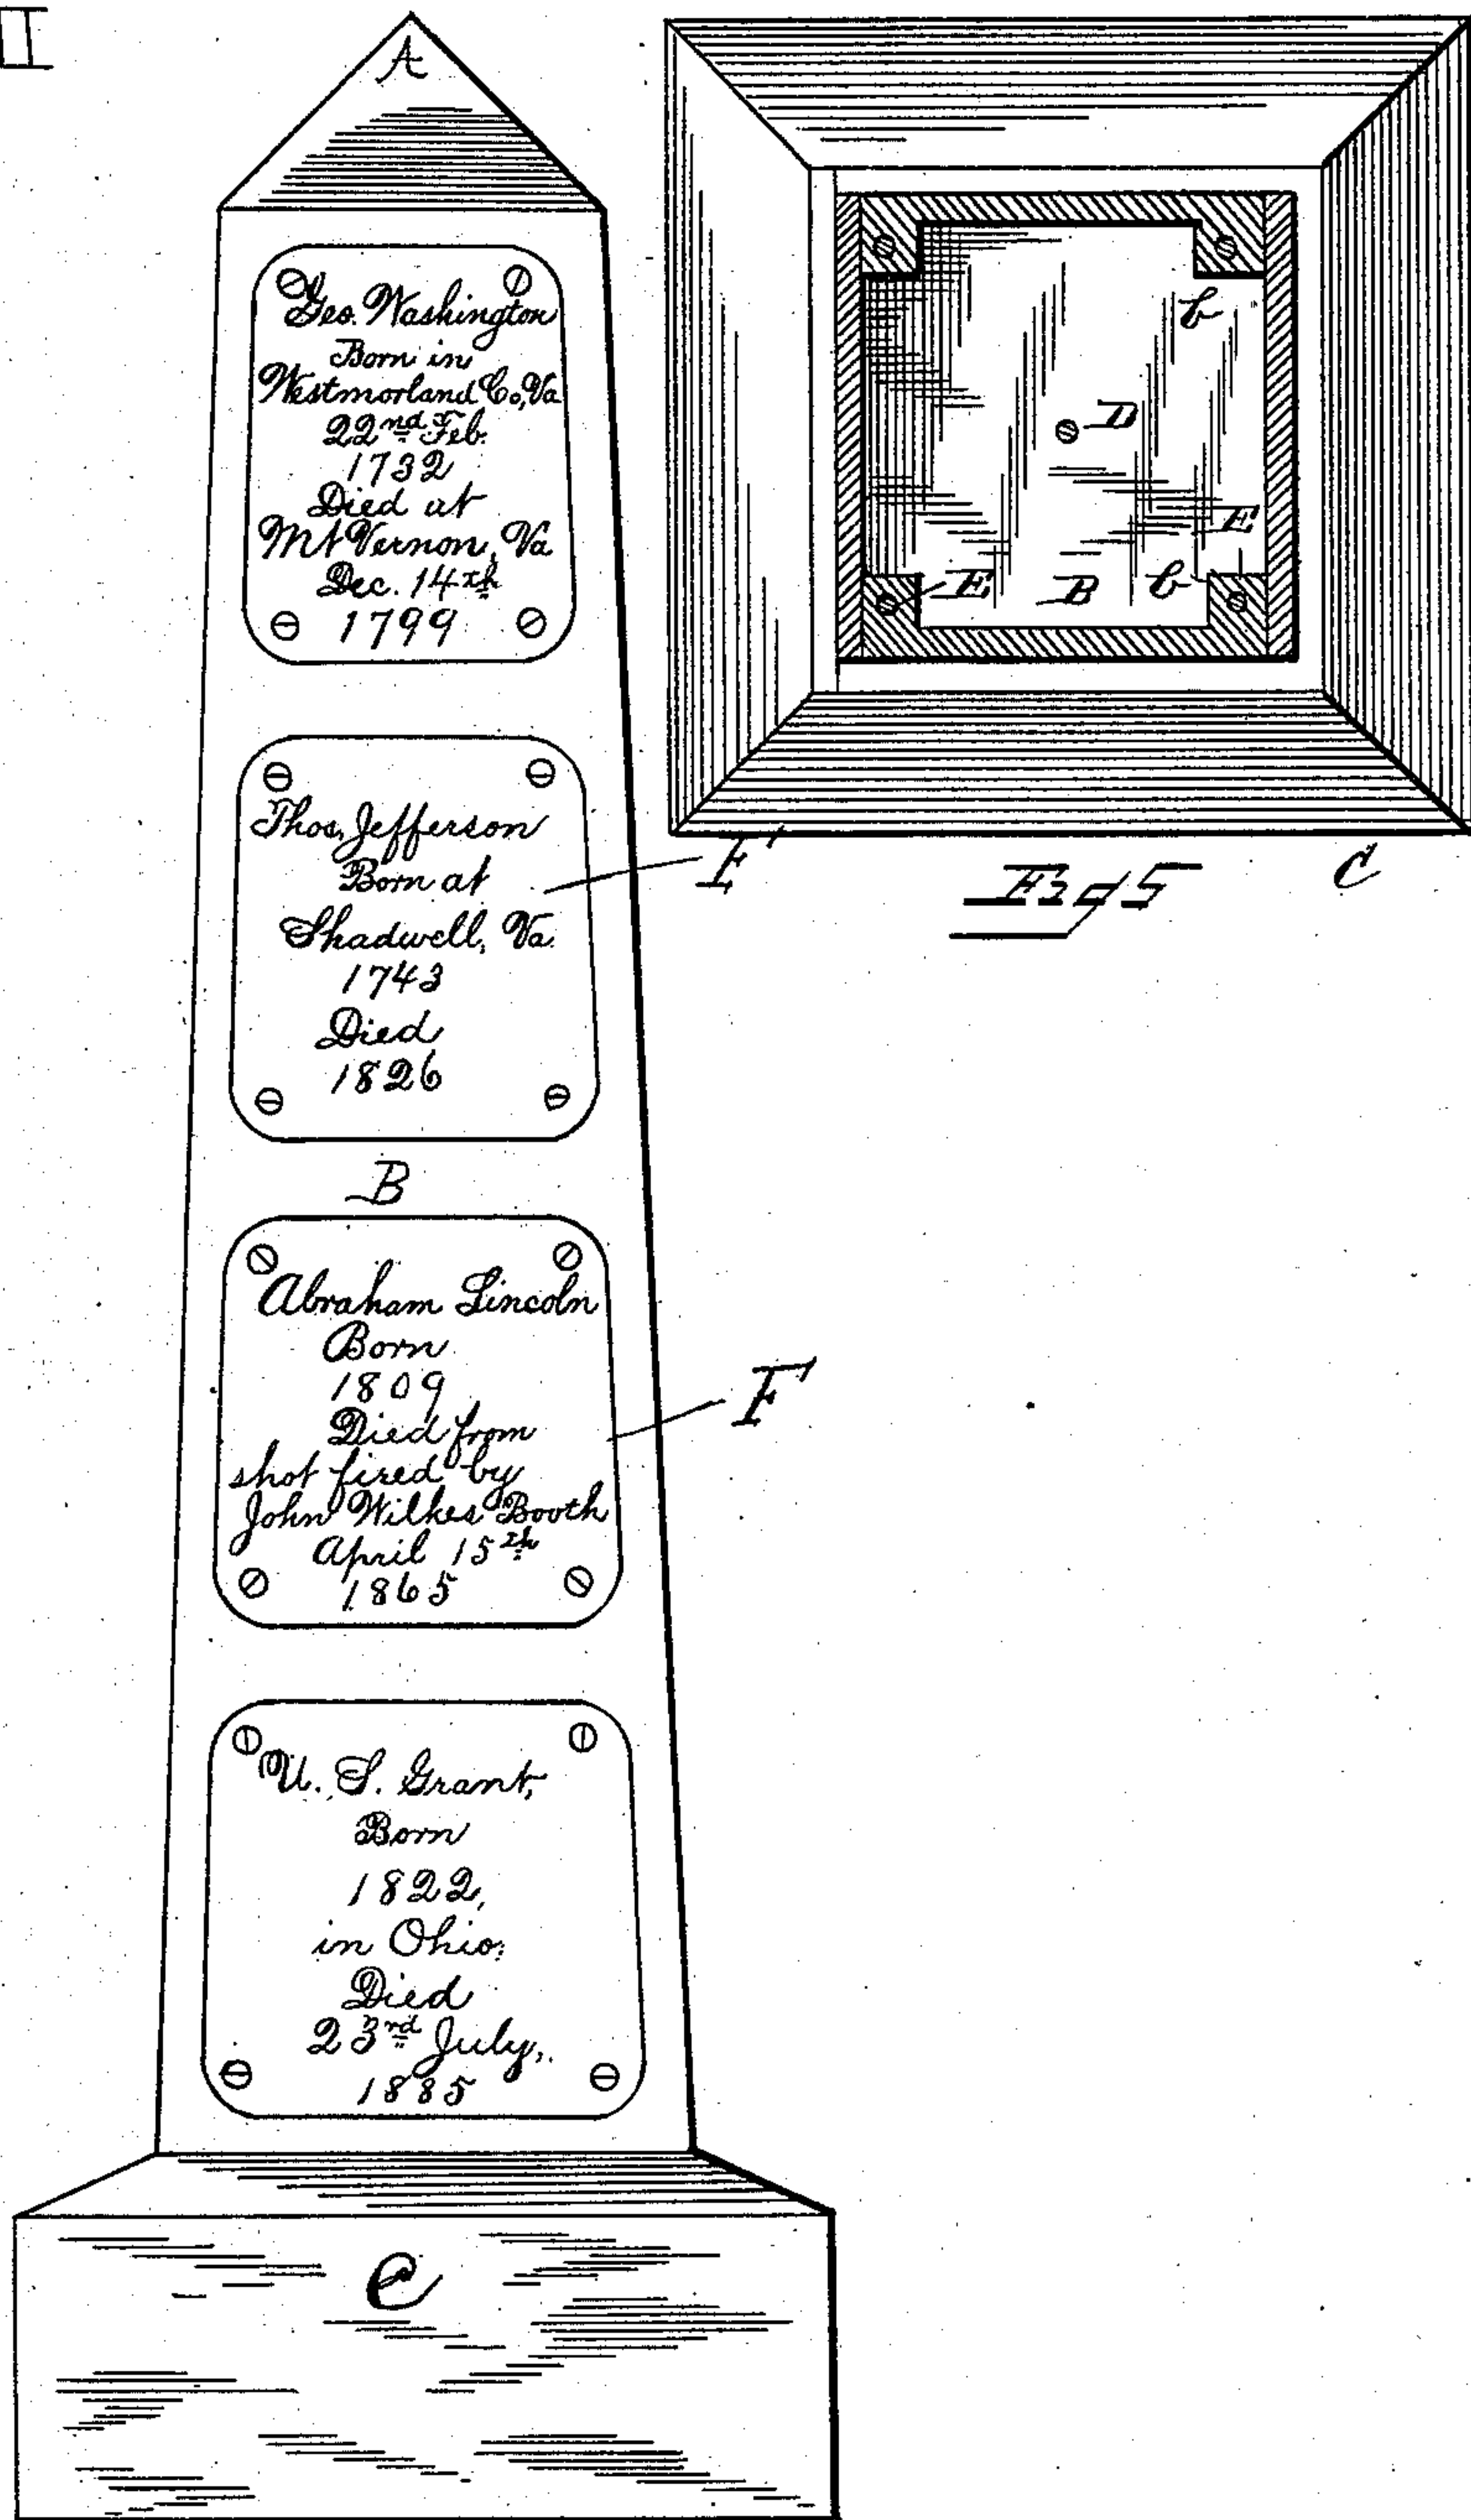 II
A
Geo. Washington
Born in
Westmorland Co, Va
22nd Feb.
1732
Died at
Mt Vernon, Va
Dec. 14th
1799
Thos, Jefferson
Born at
Shadwell, Va.
1743
Died
1826
F
B
Abraham Lincoln
Born
1809
Died from
shot fired by
John Wilkes Booth
April 15th
1865
F
U. S. Grant,
Born
1822,
in Ohio.
Died
23rd July,
1885
C
b
D
E
E B b
Fig 5 C